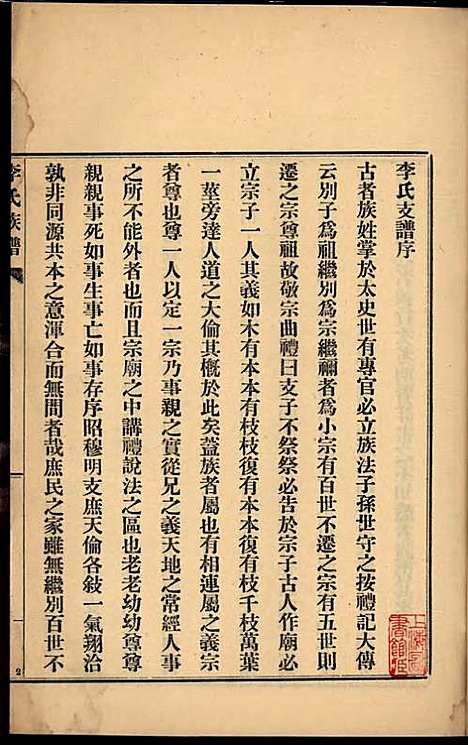 李氏支譜序
古者族姓掌於太史世有專官必立族法子孫世守之按禮記大傳
云別子爲祖繼別爲宗繼禰者爲小宗有百世不遷之宗有五世則
遷之宗尊祖故敬宗曲禮曰支子不祭祭必告於宗子古人作廟必
立宗子一人其義如木有本本有枝枝復有本本復有枝千枝萬葉
一莖旁達人道之大倫其槪於此矣蓋族者屬也有相連屬之義宗
者尊也尊一人以定一宗乃事親之實從兄之義天地之常經人事
之所不能外者也而且宗廟之中講禮說法之區也老老幼幼尊尊
親親事死如事生事亡如事存序昭穆明支庶天倫各敍一氣翔治
孰非同源共本之意渾合而無間者哉庶民之家雖無繼別百世不
李氏族譜
2